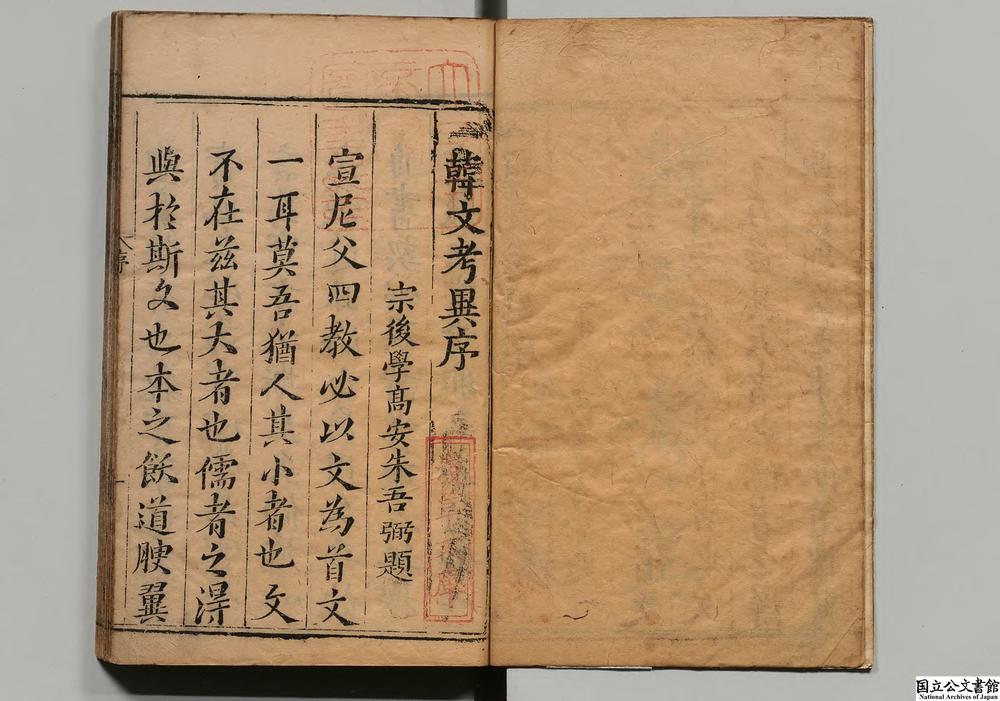 韓文考異序
宗後學髙安朱吾弼題
宣尼父四教必以文為首文
一耳莫吾猶人其小者也文
不在兹其大者也儒者之淂
與於斯文也本之飫道腴翼
序
国立公文書館
National Archives of Japan